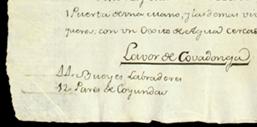 1 Puerta de una mano, y las demas
con un Osito de Agua cerca
Lavor de Covadonga
44. Bueyes Labradores
12. Pares de Coyundas